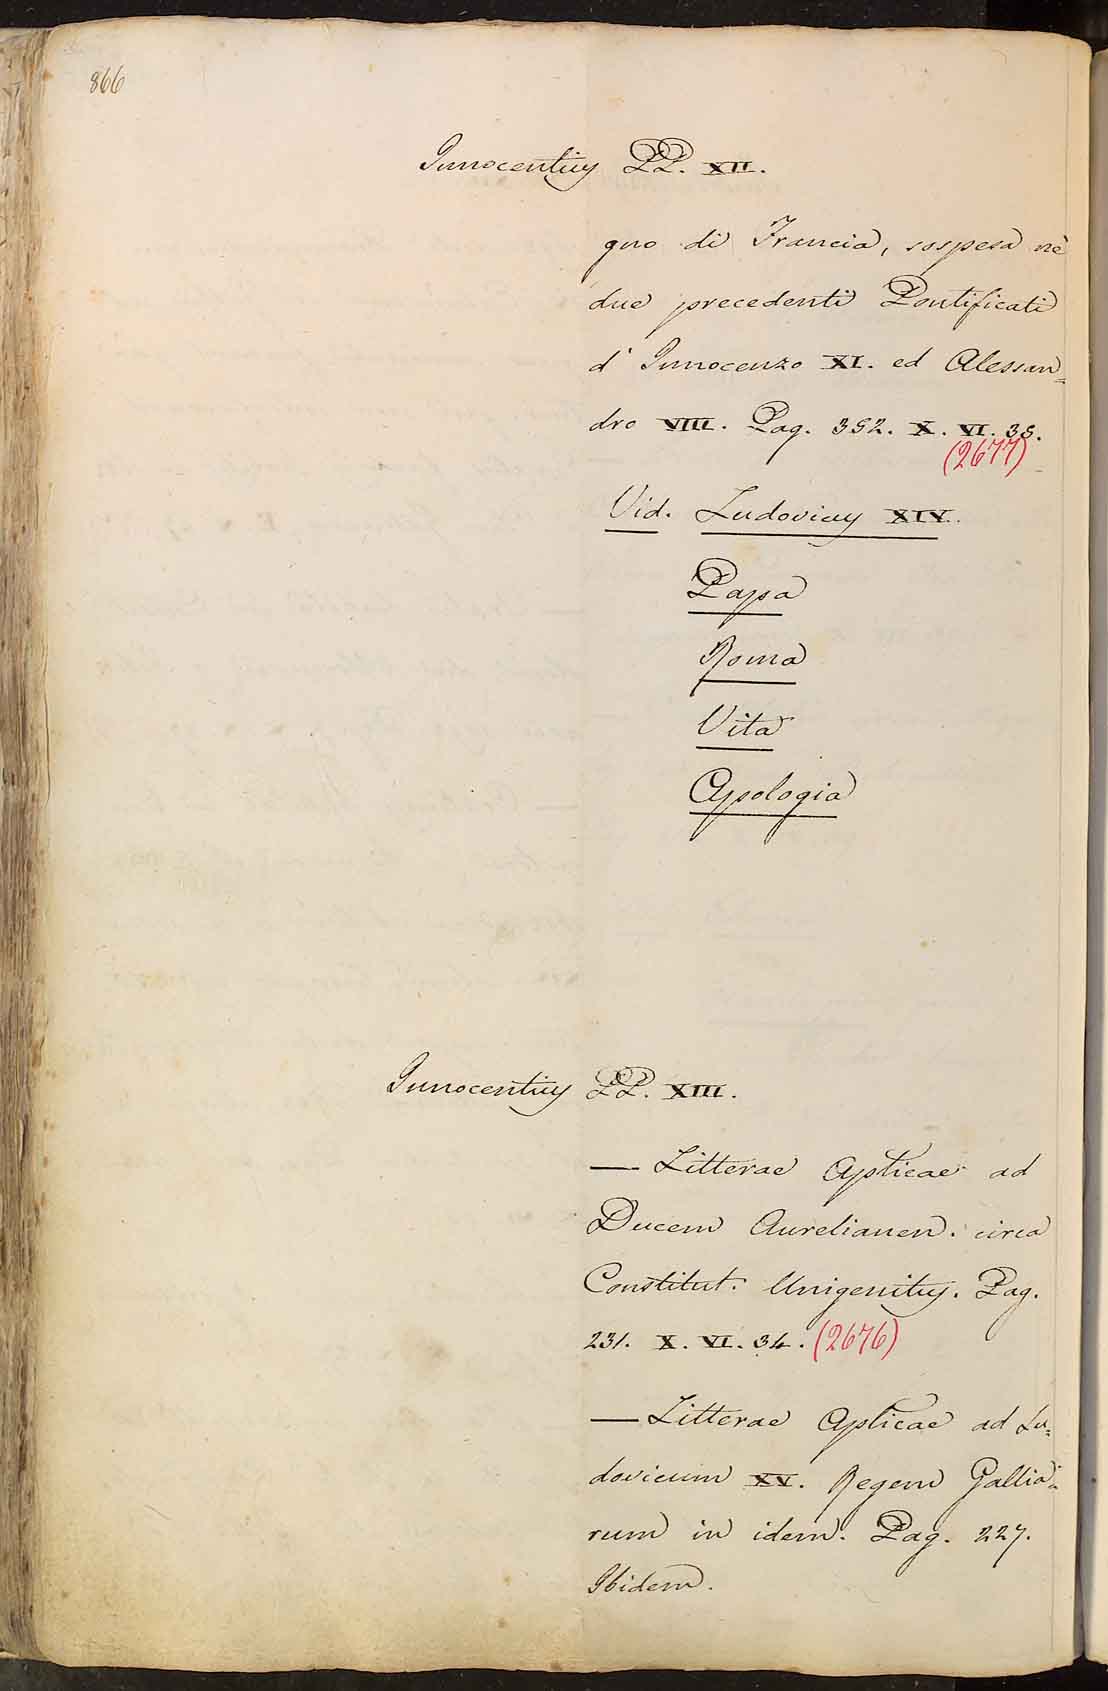 866
Innocentius PP. XII.
gno di Francia, sospesa nè
due precedenti Pontificati
d' Innocenzo XI. ed Alessan=
dro VIII. Pag. 352. X. VI. 35.
(2677)
Vid. Ludovicus XIV.
Papa
Roma
Vita
Apologia
Innocentius PP. XIII.
— Litterae Apticae ad
Ducem Aurelianen. circa
Constitut. Unigenitus. Pag.
231. X. VI. 34. (2676)
— Litterae Aplicae ad Lu=
dovicum XV. Regem Gallia=
rum in idem. Pag. 227.
Ibidem.